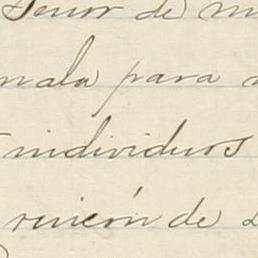 Señor de m
mala para a
individuos
rincón de